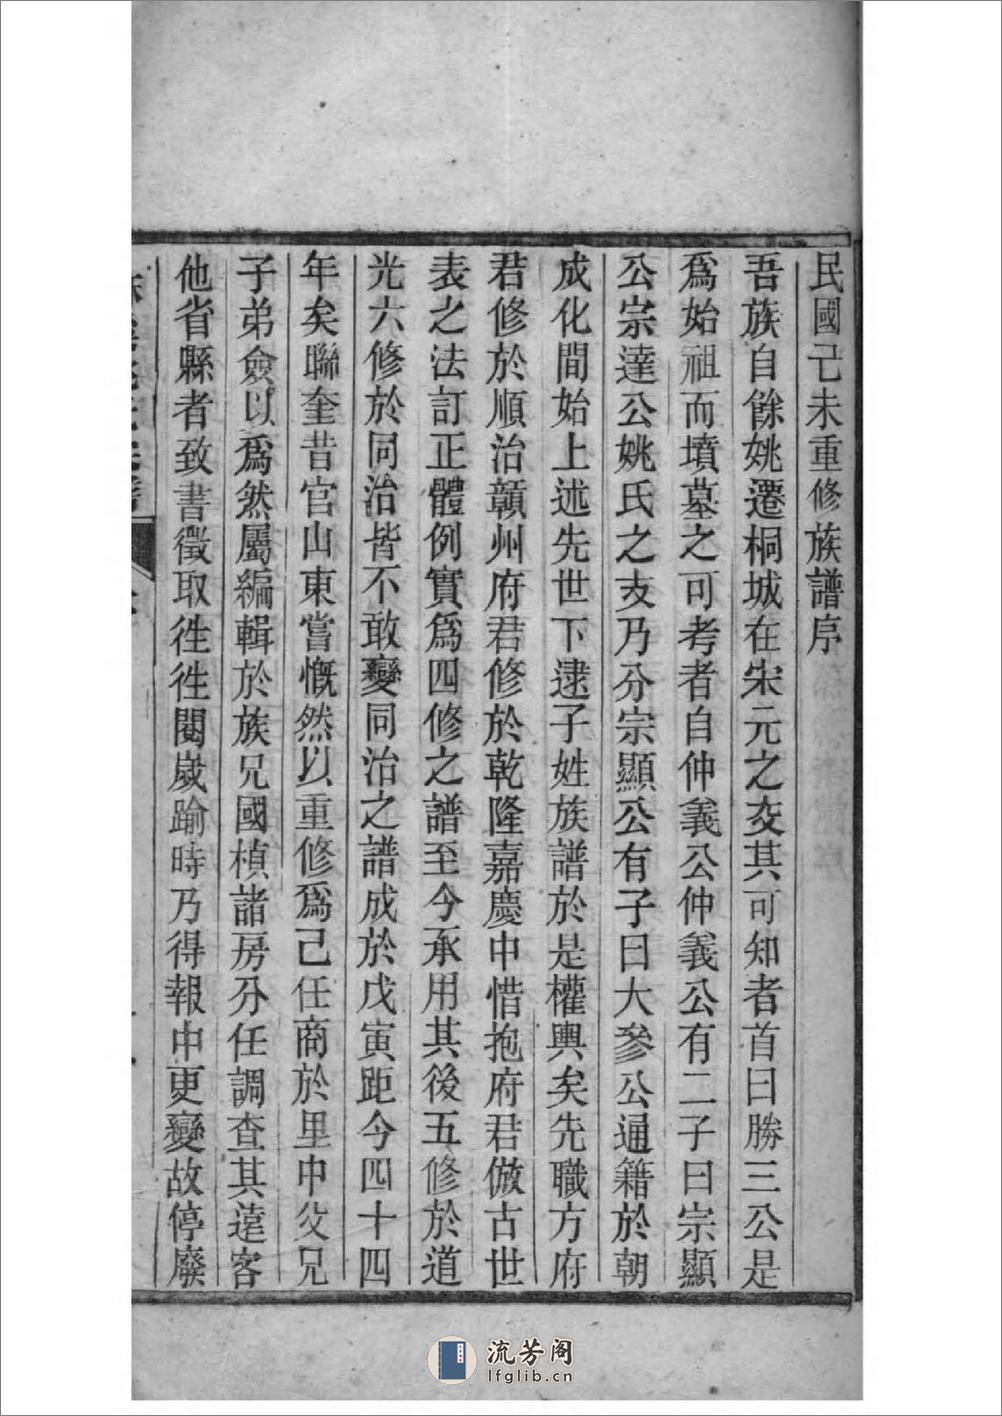 民國己未重修族譜序
吾族自餘姚遷桐城在宋元之交其可知者首曰勝三公是
爲始祖而墳墓之可考者自仲義公仲義公有二子曰宗顯
公宗達公姚氏之支乃分宗顯公有子曰大參公通籍於朝
成化間始上述先世下逮子姓族譜於是權輿矣先職方府
君修於順治贛州府君修於乾隆嘉慶中惜抱府君倣古世
表之法訂正體例實爲四修之譜至今承用其後五修於道
光六修於同治皆不敢變同治之譜成於戊寅距今四十四
年矣聯奎昔官山東嘗慨然以重修爲己任商於里中父兄
子弟僉以爲然屬編輯於族兄國楨諸房分任調查其遠客
他省縣者致書徵取往往閱歲踰時乃得報中更變故停廢
流芳阁
lfglib.cn